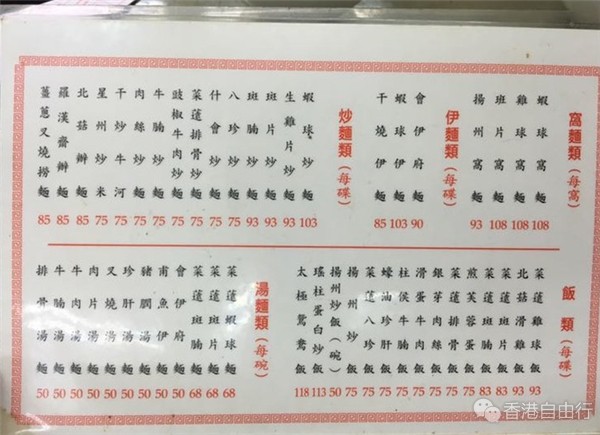 窩麵類(每窩)
蝦球窩麵 108
雞球窩麵 108
斑片窩麵 108
揚州窩麵 93
伊麵類(每碟)
會伊府麵 90
蝦球伊麵 103
干燒伊麵 85
炒麵類(每碟)
蝦球炒麵 103
生雞片炒麵 93
斑片炒麵 93
斑腩炒麵 93
八珍炒麵 75
什會炒麵 75
菜薳排骨炒麵 75
豉椒牛肉炒麵 75
牛腩炒麵 75
肉絲炒麵 75
干炒牛河 75
星州炒米 75
北菇辦麵 85
羅漢齋辦麵 85
薑蔥叉燒撈麵 85
飯類(每碟)
菜薳雞球飯 93
北菇滑雞飯 93
菜薳斑片飯 83
菜薳斑腩飯 83
煎芙蓉蛋飯 75
菜薳排骨飯 75
銀芽肉絲飯 75
滑蛋牛肉飯 75
柱侯牛腩飯 75
蠔油珍肝飯 75
菜薳八珍飯 75
揚州炒飯 75
揚州炒飯(碗) 50
瑤柱蛋白炒飯 113
太極鴛鴦飯 118
湯麵類(每碗)
菜薳蝦球麵 68
菜薳斑片麵 68
菜薳斑腩麵 68
會伊府麵 50
甫魚伊麵 50
豬膶湯麵 50
珍肝湯麵 50
叉燒湯麵 50
肉片湯麵 50
牛肉湯麵 50
牛腩湯麵 50
排骨湯麵 50
香港自由行